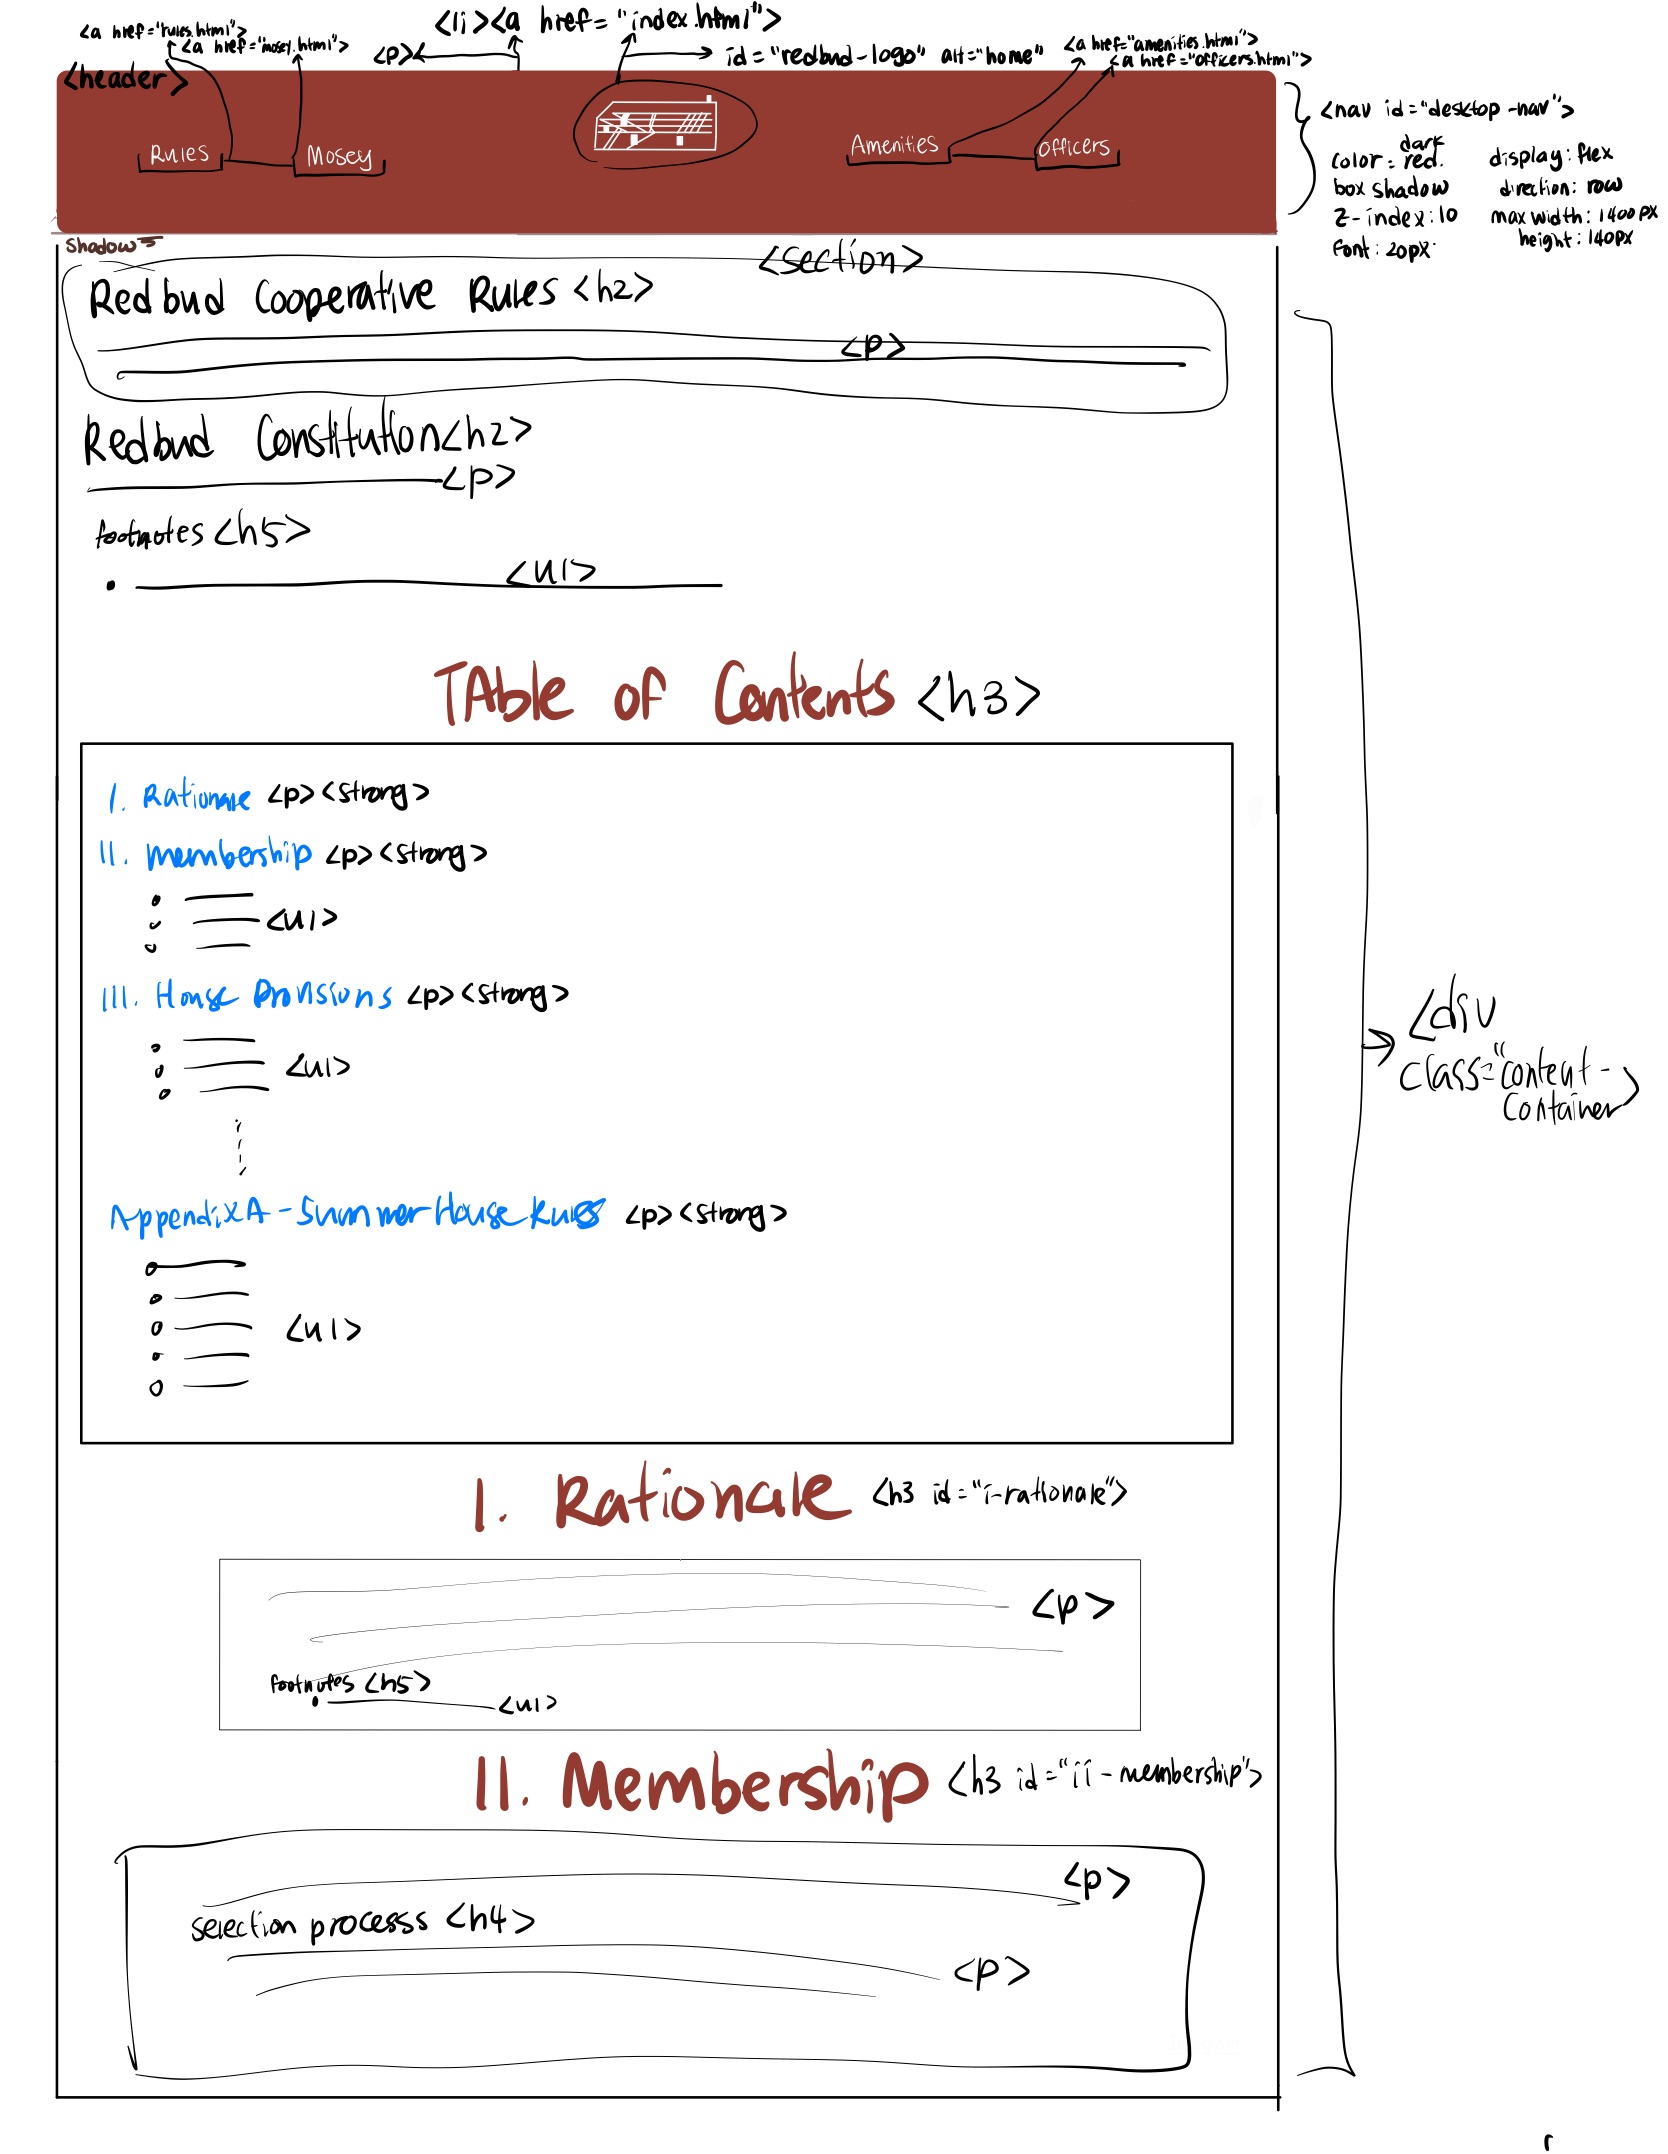 <a href="rules.html">
<a href="mosey.html">
<li><a href="index.html">
<p>
id="redbud-logo" alt="home"
<a href="amenities.html">
<a href="officers.html">
<header>
Rules
Mosey
Amenities
Officers
<nav id="desktop-nav">
color: dark red.
box shadow
z-index: 10
font: 20px
display: flex
direction: row
max width: 1400px
height: 140px
Shadow
<section>
Redbud Cooperative Rules <h2>
<p>
Redbud Constitution <h2>
<p>
footnotes <h5>
<ul>
TAble of Contents <h3>
I. Rationale <p><strong>
II. membership <p><strong>
<ul>
III. House Provisions <p><strong>
<ul>
Appendix A - Summer House Rules <p><strong>
<ul>
<div
class="content-
container>
I. Rationale <h3 id="i-rationale">
<p>
footnotes <h5>
<ul>
II. Membership <h3 id="ii-membership">
<p>
selection processs <h4>
<p>